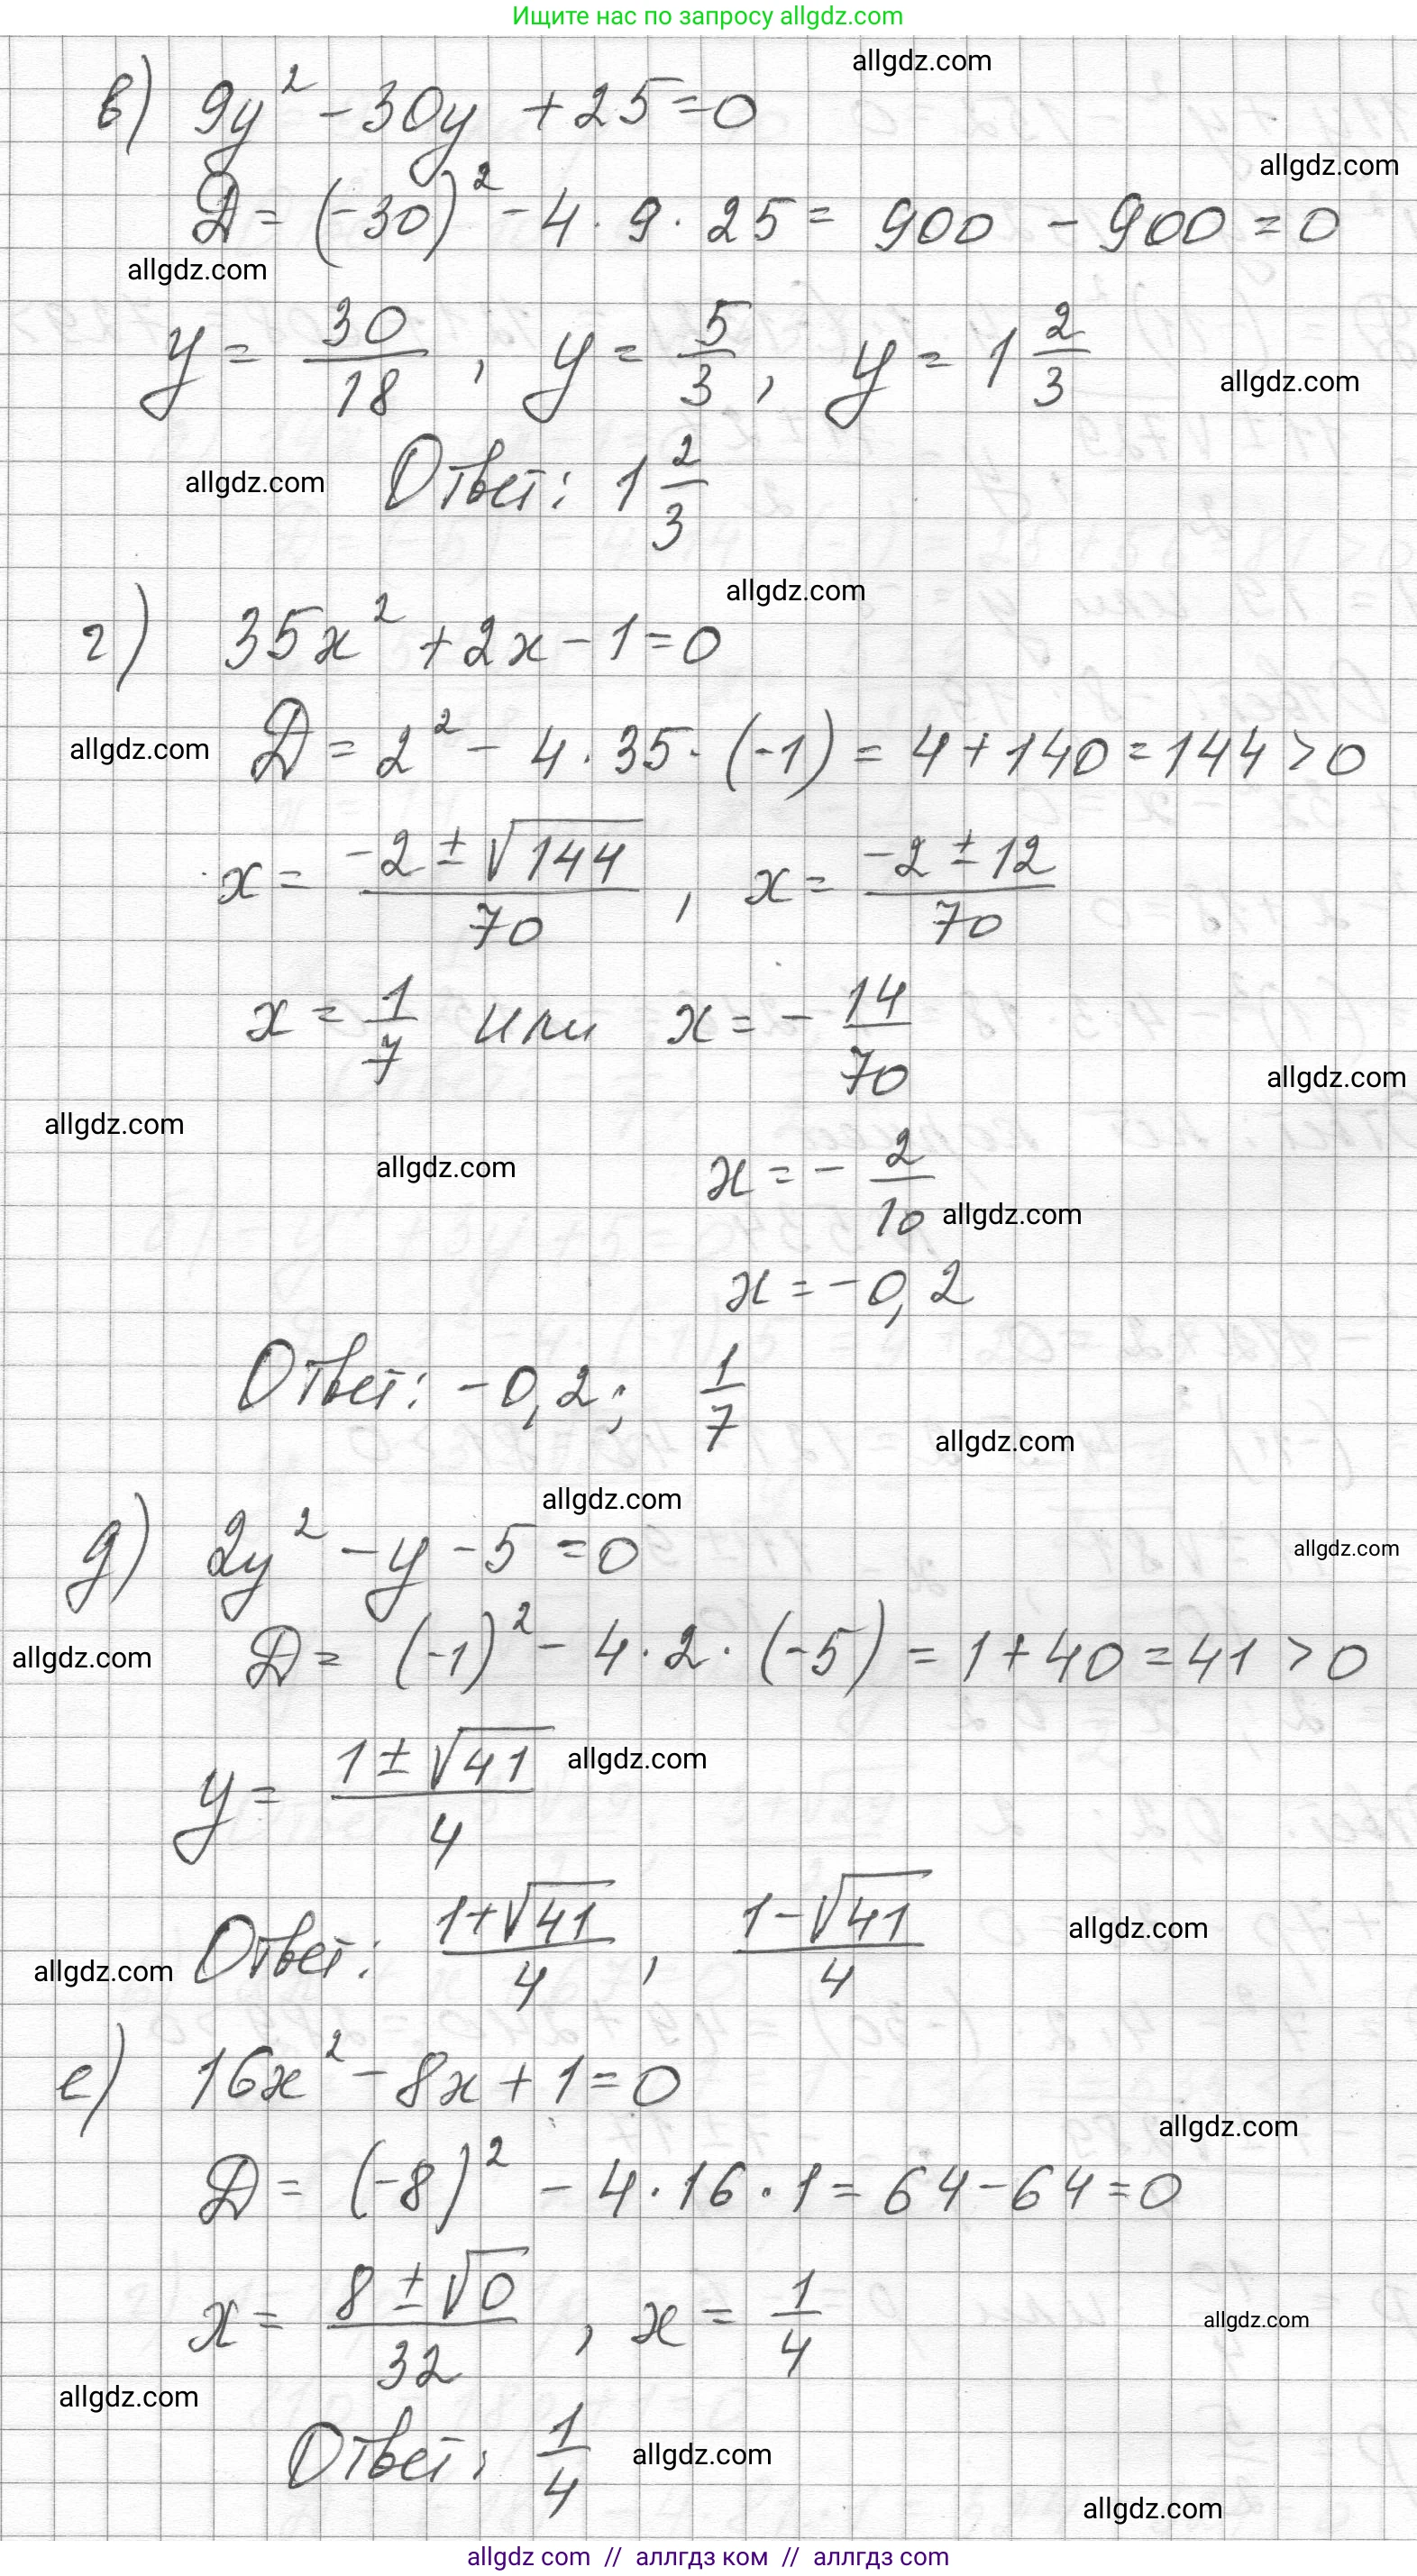 Ищите нас по запросу allgdz.com
allgdz.com
в) 9y² - 30y + 25 = 0
allgdz.com
D = (-30)² - 4 · 9 · 25 = 900 - 900 = 0
allgdz.com
y = 30/18 , y = 5/3 , y = 1 2/3
allgdz.com
allgdz.com Ответ: 1 2/3
allgdz.com
г) 35x² + 2x - 1 = 0
allgdz.com D = 2² - 4 · 35 · (-1) = 4 + 140 = 144 > 0
x = (-2 ± √144)/70 , x = (-2 ± 12)/70
x = 1/7 или x = - 14/70
allgdz.com
allgdz.com
allgdz.com x = - 2/10
allgdz.com
x = -0,2
Ответ: -0,2; 1/7
allgdz.com
allgdz.com
д) 2y² - y - 5 = 0 allgdz.com
allgdz.com D = (-1)² - 4 · 2 · (-5) = 1 + 40 = 41 > 0
y = (1 ± √41)/4 allgdz.com
allgdz.com Ответ: (1+√41)/4 , (1-√41)/4 allgdz.com
е) 16x² - 8x + 1 = 0
allgdz.com
D = (-8)² - 4 · 16 · 1 = 64 - 64 = 0
x = (8 ± √0)/32 , x = 1/4 allgdz.com
allgdz.com
Ответ: 1/4 allgdz.com
allgdz.com
allgdz com // аллгдз ком // аллгдз com